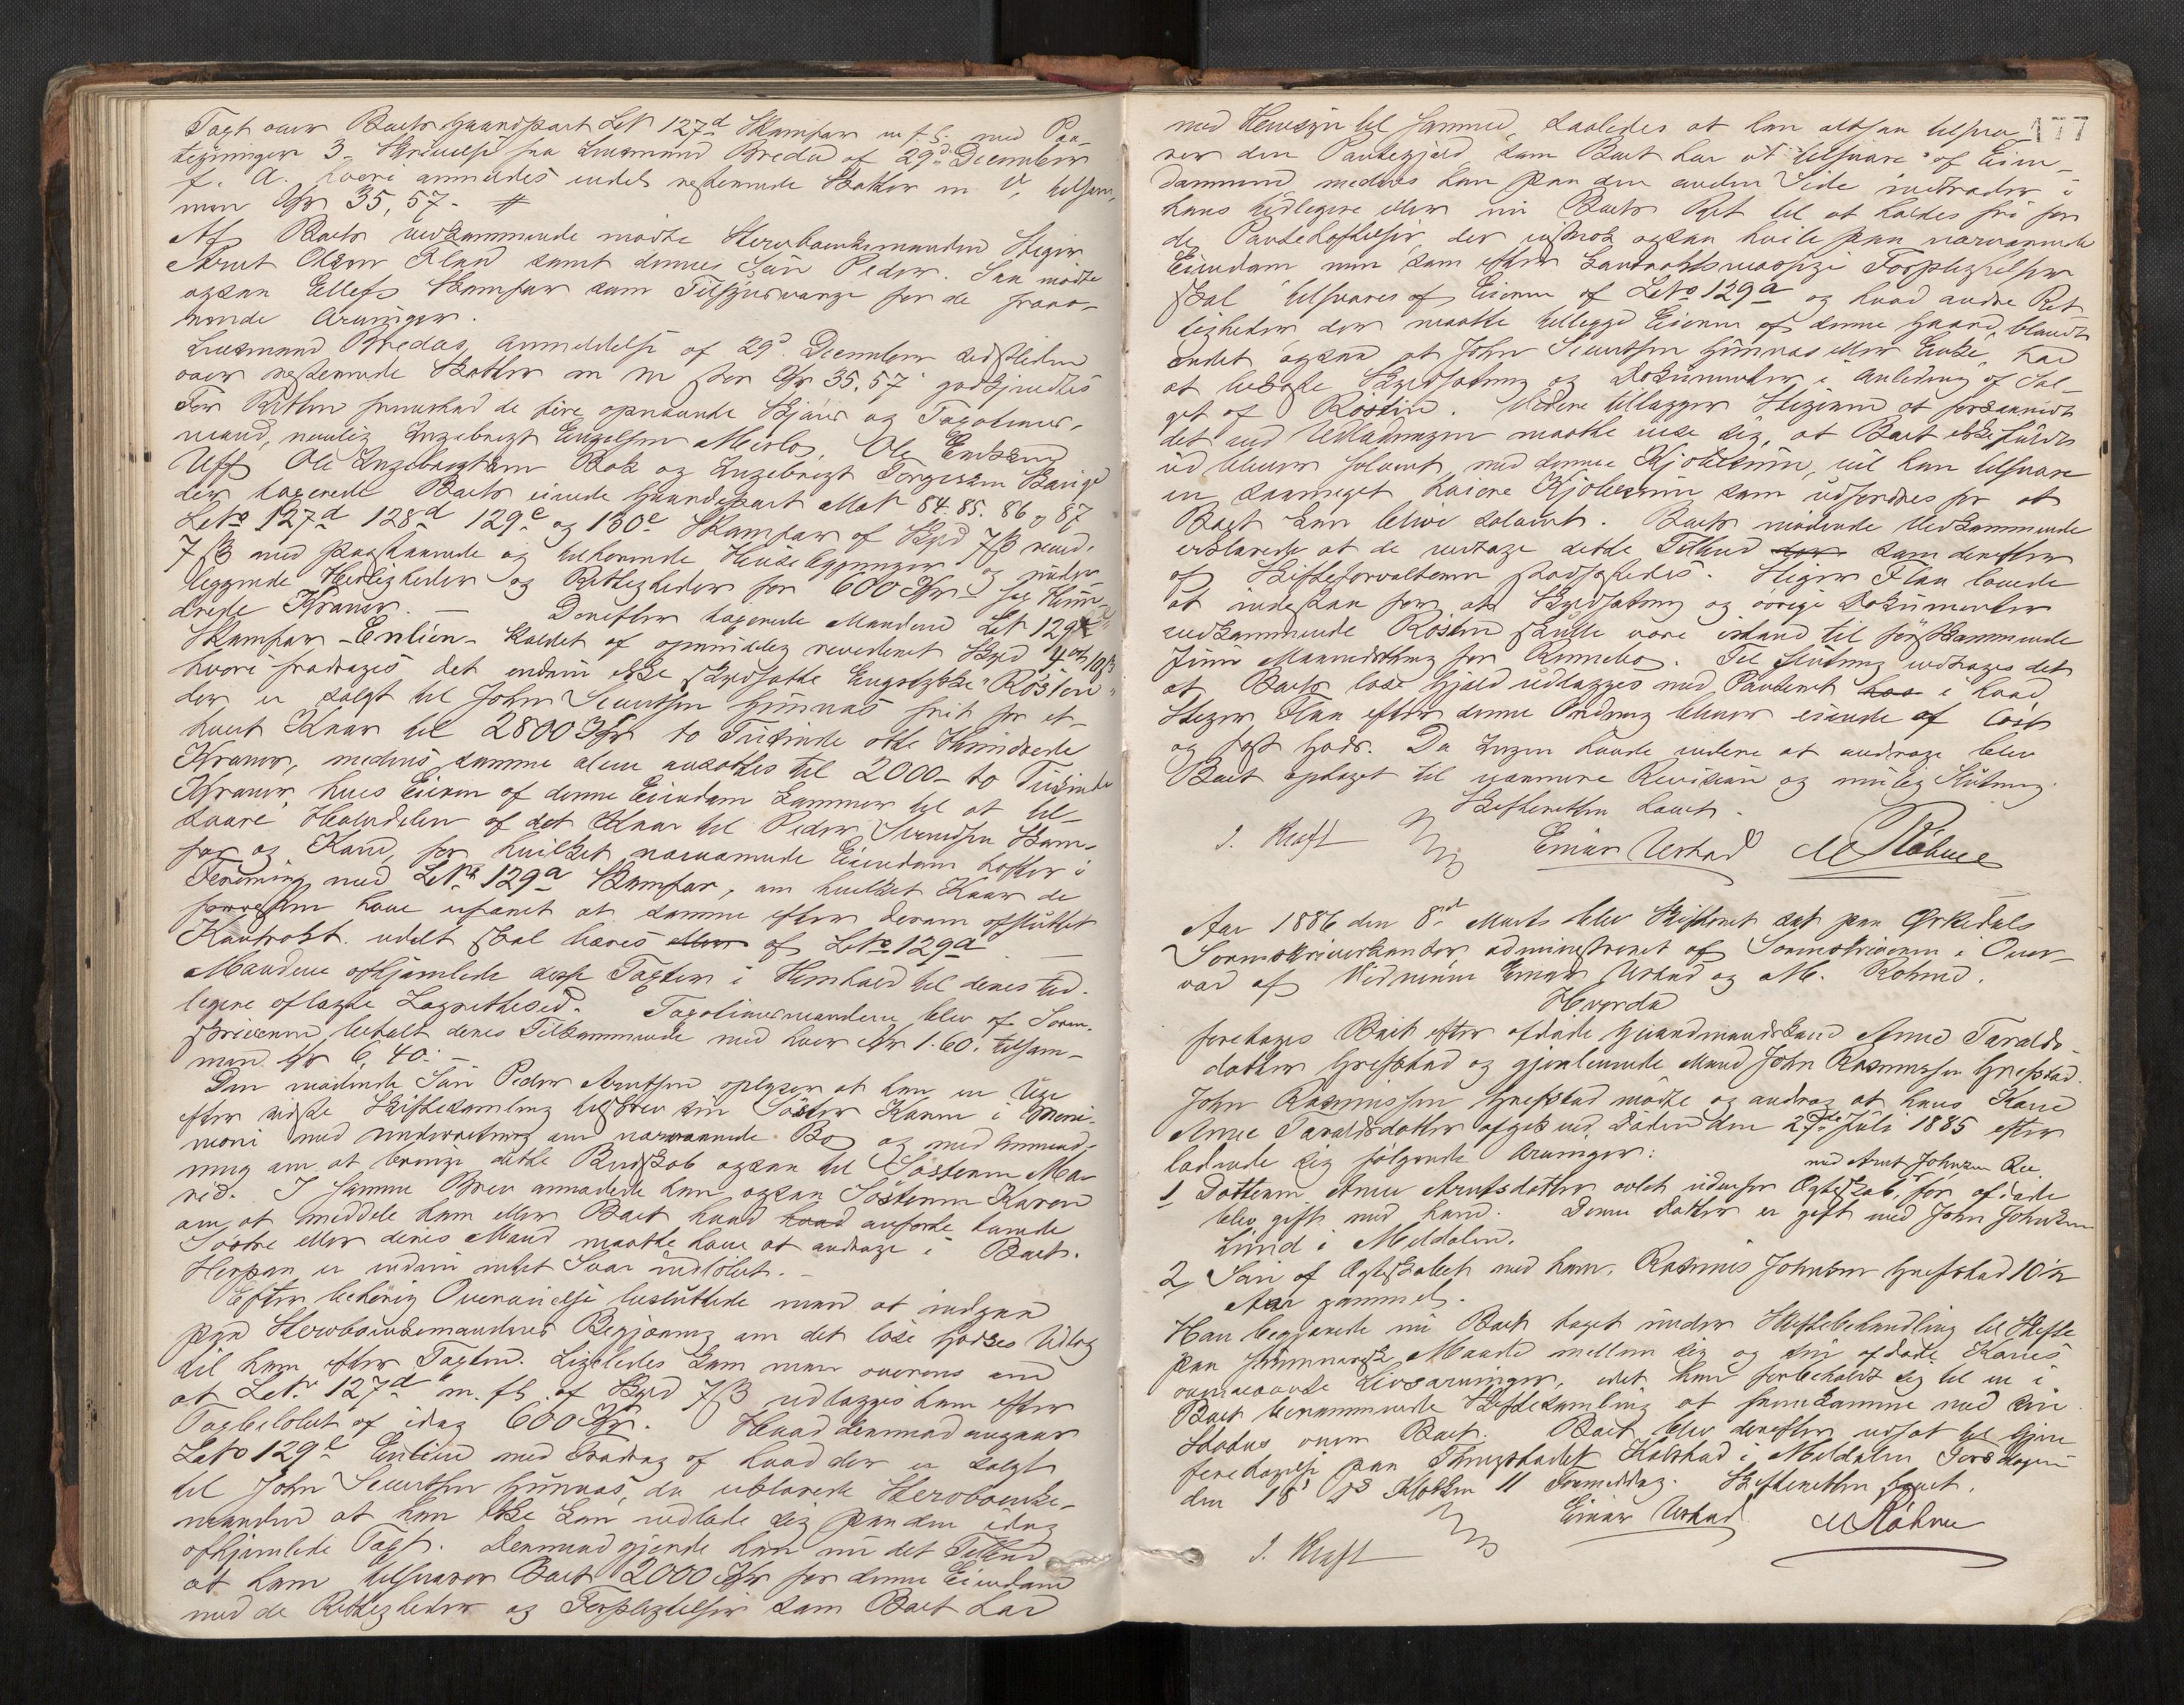 Taxt over Boets Gaardpart LNr 127d Skamfar m. fl. med Paa-
tegninger 3. Skrivelse fra Lensmand Bredal af 29d December
f. A. hvori anmeldes endel resterende Skatter m V. tilsam-
men Kr 35,57. #
Af Boets vedkommende mødte Stervboenkemanden Steger
Arnt Olsen Flaa samt dennes Søn Peder. Saa mødte
ogsaa Ellef Skamfar som Tilsynsværge for de fravæ-
rende Arvinger.
Lensmand Bredals Anmeldelse af 29d December sidstleden
over resterende Skatter m m stor Kr 35.57 godkjendtes
For Retten fremstod de fire opnævnte Skjøns og Taxations-
mænd, nemlig Ingebrigt Engelsen Merlo, Ole Eriksen
Uff Ole Ingebrigtsen Bak og Ingebrigt Torgersen
der taxerede Boets eiende Gaardspart MatNr 84. 85. 86 og 87
LNo 127d 128d 129c og 130c Skamfar af Skyld 7ß revid.
7 ß med paastaaende og tilhørende Husebygninger og under-
liggende Herligheder og Rettigheder for 600 Kr sex Hun-
drede Kroner. — Derefter taxerede Mændene LNr 129
Skamfar -Enlien- kaldet af oprindelig revideret Skyld 4 ort 10ß
hvori fradrages det endnu ikke skyldsatte Engstykke "Røsten"
der er solgt til John Sivertsen Grinnas frit for et-
hvert Kaar til 2800 Kr to Tusinde otte Hundrede
Kroner, medens samme alene ansattes til 2000- to Tusinde
Kroner, hvis Eieren af denne Eiendom kommer til at til-
svare Halvdelen af det Kaar til Peder Sivertsen Skam-
far og Kone, for hvilket nærværende Eiendom hefter i
Forening med LNo 129a Skamfar, om hvilket Kaar de
foregiven have erfaret at samme efter derom afsluttet
Kontrakt udelt skal hæres af LNo. 129a —
Mændene afhjemlede disse Taxter i Henhold til deres tid-
ligere aflagte Lagretteseed. Taxationsmændene blev af Soren-
skriveren betalt deres Tilkommende med hver Kr 1.60. tilsam-
men Kr 6,40. —
Den mødende Søn Peder Arntsen oplyser at han en Uge
efter sidste Skiftesamling tilskrev sin Søster Karen i
moni med Underretning om nærværende Bo og med Anmod-
ning om at bringe dette Budskab ogsaa til Søsteren Ma-
rit. I samme Brev anmodede han ogsaa Søsteren Karen
om at meddele ham eller Boet hvad hvad anførte hende
Søstre eller deres Mænd maatte have at andrage i Boet.
Herpaa er endnu intet Svar indløbet. —
Efter behørig Overveielse besluttede man at indgaa
paa Stervboenkemandens Begjæring om det løse Godses Udlæg
til ham efter Taxten. Ligeledes kom man overens om
at LNr. 127d m. fl. af Skyld 7ß udlægges ham efter
Taxbeløbet af idag 600 Kr. Hvad dennod angaar
LNo 129c Enlien med Fradrag af hvad der er solgt
til John Sivertsen Grinnas, da erklærede Stervboenke-
manden at han ikke kan indlade sig paa den idag
afhjemlede Taxt. Dennod gjorde han nu det Tilbud
at han tilsvarer Boet 2000 Kr for denne Eiendom
med de Rettigheder og Forpligtelser som Boet har
177
med Hensyn til samme, saaledes at han altsaa tilsva-
rer den Pantegjæld som Boet har at tilsvare af Eien-
dommen, medens han paa den anden Side indtræder i
hans tidligere eller nu Boets Ret til at holdes fri for
de Pantehæftelser der nok ogsaa hvile paa nærværende
Eiendom men som efter kontraktsmæssige Forpligtelser
skal tilsvares af Eieren af LNo 129a og hvad andre Ret-
tigheder der maatte tillægge Eieren af denne Gaard, blandt
andet ogsaa at John Sivertsen Grinnas eller Enke, har
at bekoste Skyldsætning og Dokumenter i Anledning af Sal-
get af Røsten. Videre tillægger Stegeren at forsaavidt
det ved Udlodningen maatte vise sig, at Boet ikke fuldt
ud bliver solvent med denne Kjøbesum, vil han tilsvare
en saameget høiere Kjøbesum som udfordres for at
Boet kan blive solvent. Boets mødende Vedkommende
erklærede at de vedtage dette Tilbud som derefter
af Skifteforvalteren stadfæstedes. Steger Flaa lovede
at indestaa for at Skyldsætning og øvrige Dokumenter
vedkommende Røsten skulle være istand til førstkommende
Juni Maanedsthing for Rennebo. Til Slutning vedtages det
at Boets løse Gjæld udlægges med Panteret i hvad
Steger Flaa efter denne Ordning bliver eiende af løst
og fast Gods. Da Ingen havde videre at andrage blev
Boet optaget til nærmere Revision og mulig Slutning.
Skifteretten hævet.
J. Kraft Einar Ustad M Röhme
Aar 1886 den 8de Marts blev Skifteret sat paa Ørkedals
Sorenskriverkontor, administreret af Sorenskriveren i Over-
vær af Vidnerne Einar Ustad og M. Rohme.
Hvorda
foretages Boet efter afdøde Gaardmandskone Anne Taralds-
datter Grefstad og gjenlevende Mand John Rasmussen Grefstad.
John Rasmussen Grefstad mødte og androg at hans Kone
Anne Taraldsdatter afgik ved Døden den 27de Juli 1885 efter
ladende sig følgende Arvinger:
med Arnt Johnsen Ree
1 Datteren Anne Arntsdatter avlet udenfor Ægteskab, før afdøde
blev gift med ham. Denne Datter er gift med John Johnsen
Lund i Meldalen.
2, Søn af Ægteskabet med ham, Rasmus Johnsen Grefstad 10 1/2
Aar gammel.
Han begjærede nu Boet taget under Skiftebehandling til Skifte
paa summarisk Maade mellem sig og sin afdøde Kones
ovennævnte Livsarvinger, idet han forbeholdt sig til en i
Boet berammende Skiftesamling at fremkomme med sin
Status over Boet. Boet blev derefter udsat til Gjen-
foretagelse paa Thingstedet Kalstad i Meldalen Torsdagen
den 18d ds Klokken 11 Formiddag. Skifteretten hævet.
J. Kraft Einar Ustad M Röhme